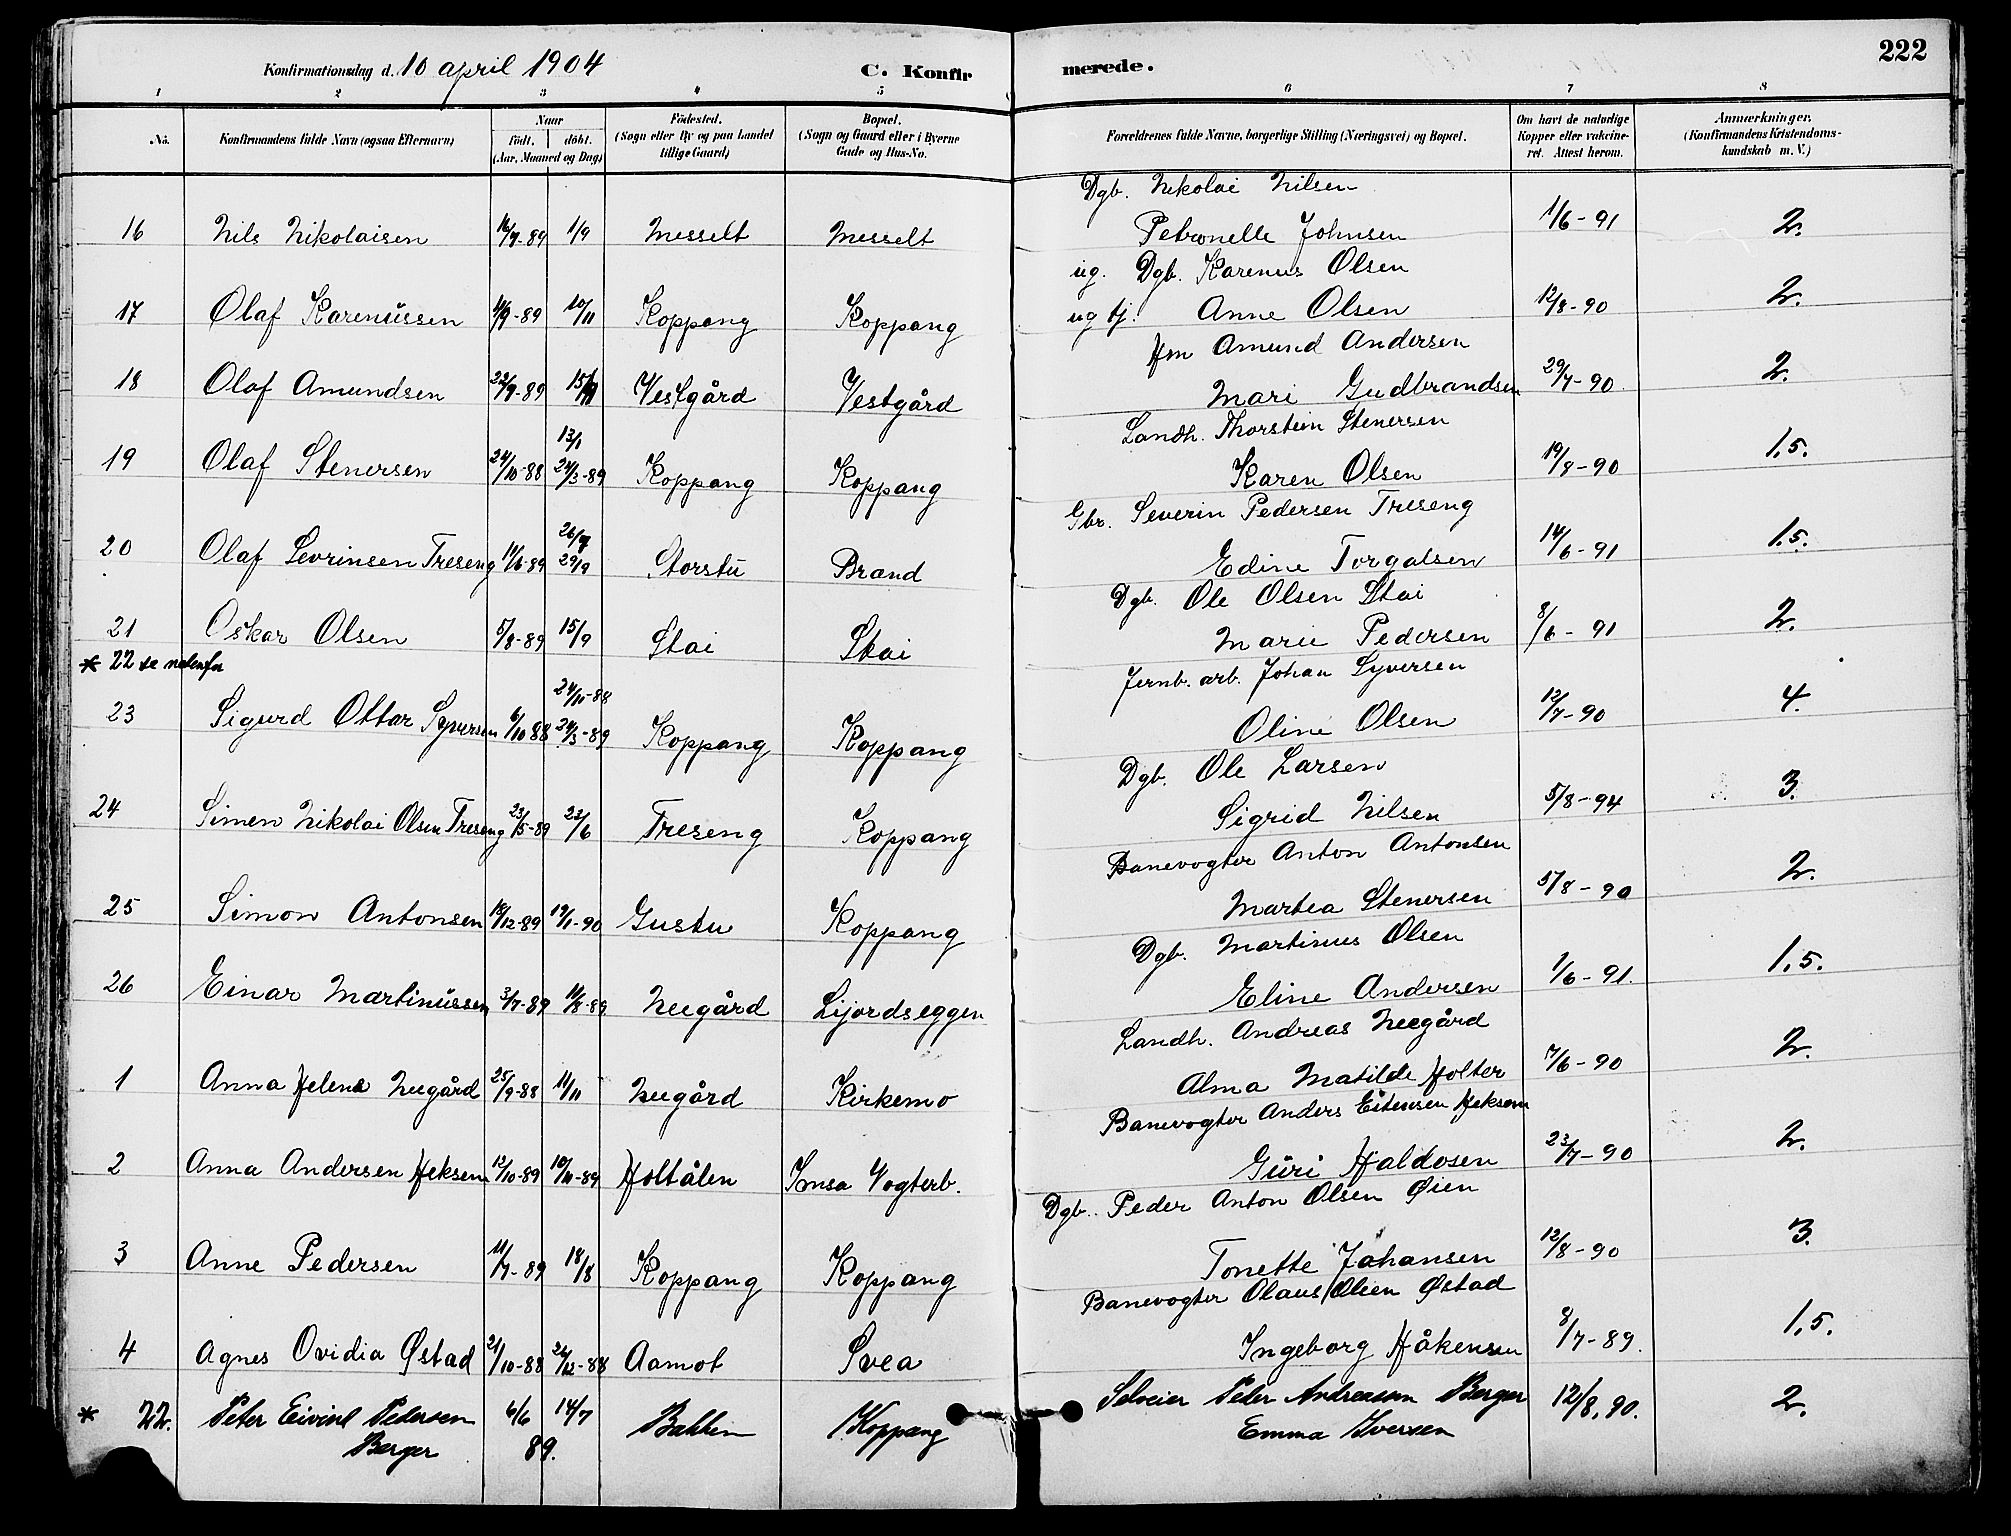 Konfirmationsdag d. 10 april 1904 C. Konfirmerede. 222
1 2 3 4 5 6 7 8
No. Konfirmandens fulde Navn (ogsaa Efternavn) Naar født, døbt. (Aar, Maaned og Dag) Fødested. (Sogn eller By og paa Landet tillige Gaard) Bopæl. (Sogn og Gaard eller i Byerne Gade og Hus-No. Forældrenes fulde Navne, borgerlige Stilling (Næringsvei) og Bopæl. Om havt de naturlige Kopper eller vakcineret. Attest herom. Anmærkninger. (Konfirmandens Kristendomskundskab m. V.)
Dgb. Nikolai Nilsen
16 Nils Nikolaisen 16/7-89 1/9 Messelt Messelt Petronelle Johnsen 1/6-91 2.
ug. Dgb. Karenus Olsen
17 Olaf Karenüssen 4/9-89 10/11 Koppang Koppang ug tj. Anne Olsen 12/8-90 2.
Hm Amund Andersen
18 Olaf Amundsen 22/9-89 15/11 Vestgård Vestgård Mari Gudbrandsen 29/7-90 2.
Landh. Thorstein Stenersen
13/1
19 Olaf Stenersen 24/10-88 24/3-89 Koppang Koppang Karen Olsen 19/8-90 1,5.
Gbr. Severin Pedersen Treseng
20 Olaf Sevrinsen Treseng 14/6-89 29/9 Storstu Brænd Edine Torgalsen 14/6-91 1.5.
Dgb. Ole Olsen Stai
21 Oskar Olsen 5/8-89 15/9 Stai Stai Marie Pedersen 8/6-91 2.
* 22 se nedenfor
Jernb. arb. Johan Syversen
24/11-88
23 Sigurd Ottar Syversen 6/10 88 24/3-89 Koppang Koppang Oline Olsen 12/7-90 4.
Dgb. Ole Larsen
24 Simen Nikolai Olsen Treseng 23/5-89 23/6 Treseng Koppang Sigrid Nilsen 5/8-94 3.
Banevogter Anton Antonsen
25 Simon Antonsen 18/12-89 19/1-90 Gustu Koppang Martea Stenersen 5/8-90 2.
Dgb. Martinus Olsen
26 Einar Martinüssen 3/7-89 11/8-89 Neegård Lijordseggen Eline Andersen 1/6-91. 1,5.
Landh. Andreas Neegård
1 Anna Helene Neegård 25/9-88 11/11 Neegård Kirkemo Alma Matilde Holter 7/6-90 2.
Banevogter Anders Estensen Heksem
2 Anna Andersen Heksem 12/10-89 10/11-89 Holtålen Imsa Vogterb. Güri Haldosen 23/7-90 2.
Dgb. Peder Anton Olsen Øien
3 Anne Pedersen 11/7-89 18/8 Koppang Koppang Tonette Johansen 12/8-90 3.
Banevogter Olaus Olsen Østad
4 Agnes Ovidia Østad 21/10-88 26/12-88 Aamot Svea Ingeborg Håkensen 8/7-89. 1,5.
* 22. Peter Eivind Pedersen 6/6 14/7 Bakken Koppang Selveier Peter Andreassen Berger 12/8. 90. 2.
Berger 89. Emma Iversen